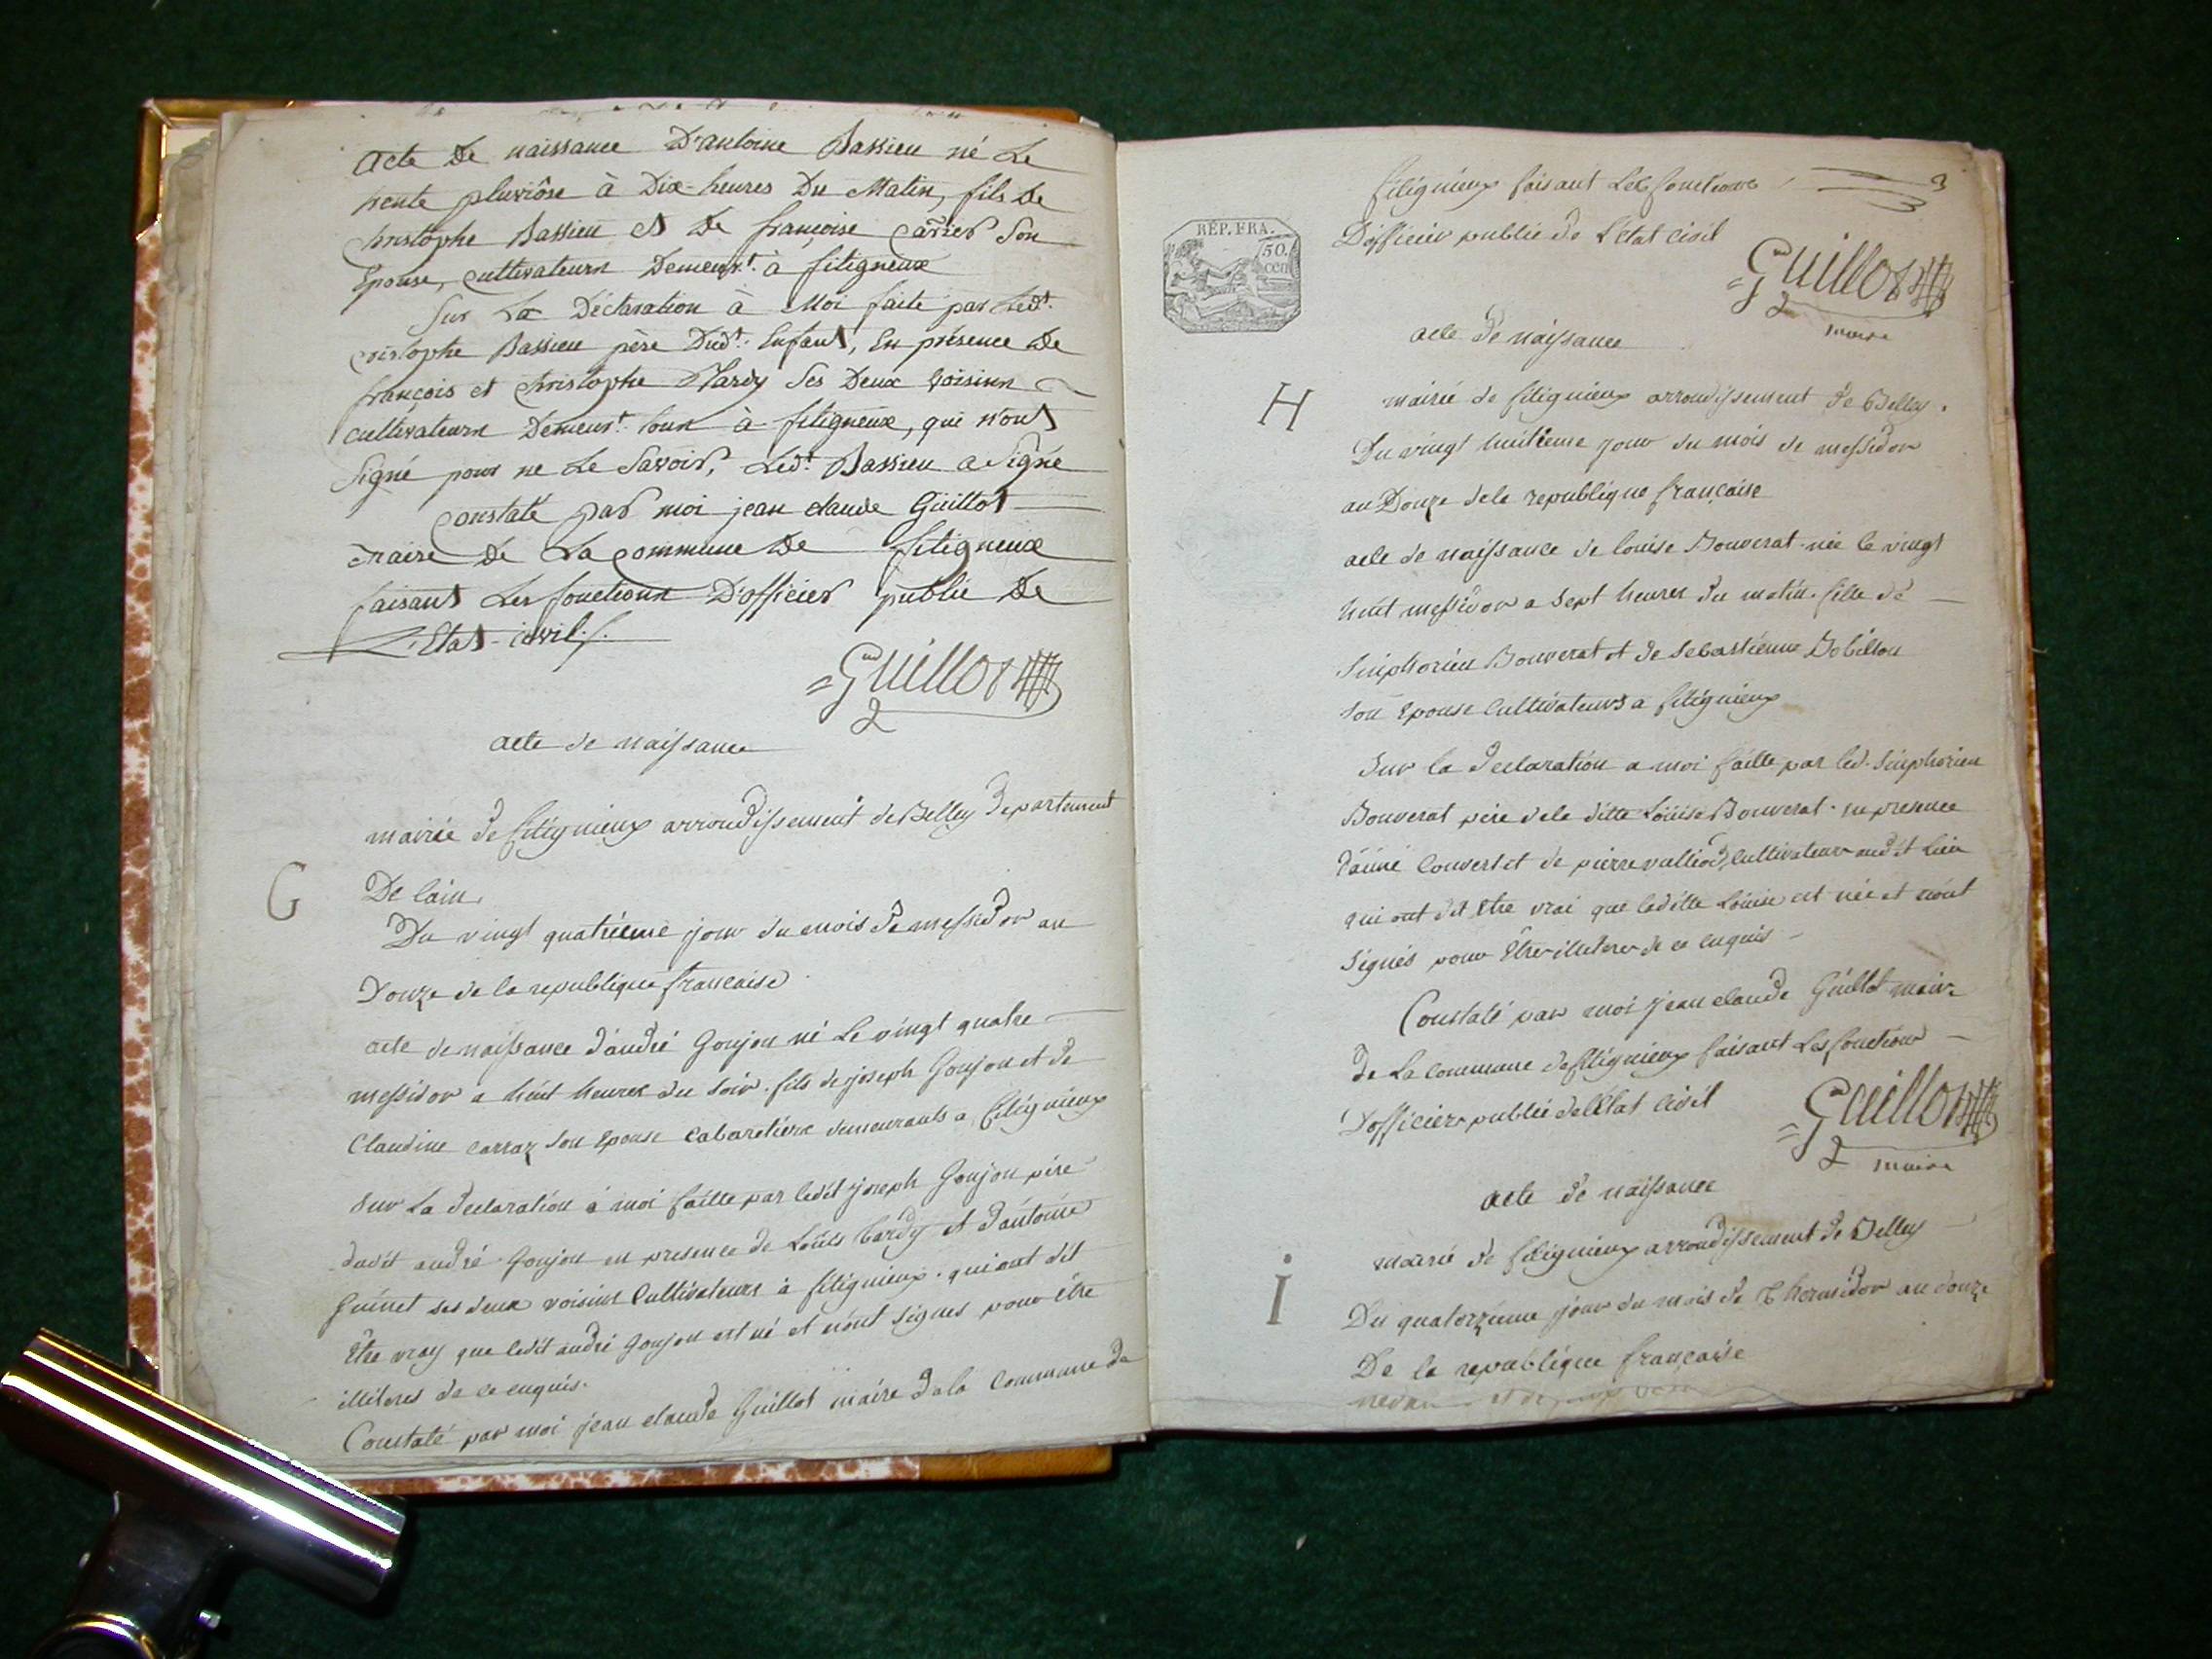 Acte De naissance D'antoine Bassieu né Le
trente pluviôse à Dix-heures Du Matin, fils De
christophe Bassieu et De françoise carrier Son
Epouse, cultivateurs Demeurt. à fitigneux
Sur La Déclaration à Moi faite par Ledt.
christophe Bassieu père Dudt. Enfant, En présence De
françois et christophe Tardy Ses Deux voisins
cultivateurs Demeurt. tous à fitigneux, qui n'ont
Signé pour ne Le Savoir, Ledt. Bassieu a Signé
constaté par moi jean claude Guillot
Maire De La commune De fitigneux
faisant Les fonctions D'officier public De
L'Etat-civil./.
Guillot
acte de naissance
mairie de fitignieux arrondissement de Belley departement
G
De lain
Du vingt quatrieme jour du mois de messidor an
Douze de la republique francaise
acte de naissance d'andré Goujon né Le vingt quatre
messidor a huit heures du soir. fils de joseph Goujon et de
Claudine carraz son Epouse cabaretiers demeurants a fitignieux
Sur La declaration a moi faitte par ledit joseph Goujon pere
dudit andré Goujon en presence de Louis tardy et d'antoine
Guinet ses deux voisins Cultivateurs a fitignieux. qui ont dit
Etre vray que ledit andré Goujon est né et n'ont signés pour être
illiteres de ce enquis.
Constaté par moi jean claude Guillot maire de la Commune de
fitignieux faisant Les fonctions
3
RÉP. FRA.
50.
cen
D'officier public de L'etat civil
Guillot
maire
acte de naissance
H
mairie de fitignieux arrondissement de Belley.
Du vingt huitieme jour du mois de messidor
an Douze de la republique française
acte de naissance de louise Bouverat née le vingt
huit messidor a sept heures du matin. fille de
Sinphorien Bouverat et de Sebastienne Dobilion
son Epouse Cultivateurs a fitignieux
Sur la declaration a moi faitte par led. Sinphorien
Bouverat pere de la ditte Louise Bouverat. en presence
d'aimé Couvert et de pierre cultivateurs audit Lieu
qui ont dit Etre vrai que laditte Louise est née et n'ont
Signés pour Etre illiteres de ce enquis
Constaté par moi jean claude Guillot maire
de La Commune de fitignieux faisant Les fonctions
D'officier public de l'Etat Civil
Guillot
maire
acte de naissance
mairie de fitignieux arrondissement de Belley
I
Du quatorzieme jour du mois de Thermidor an douze
De la republique française